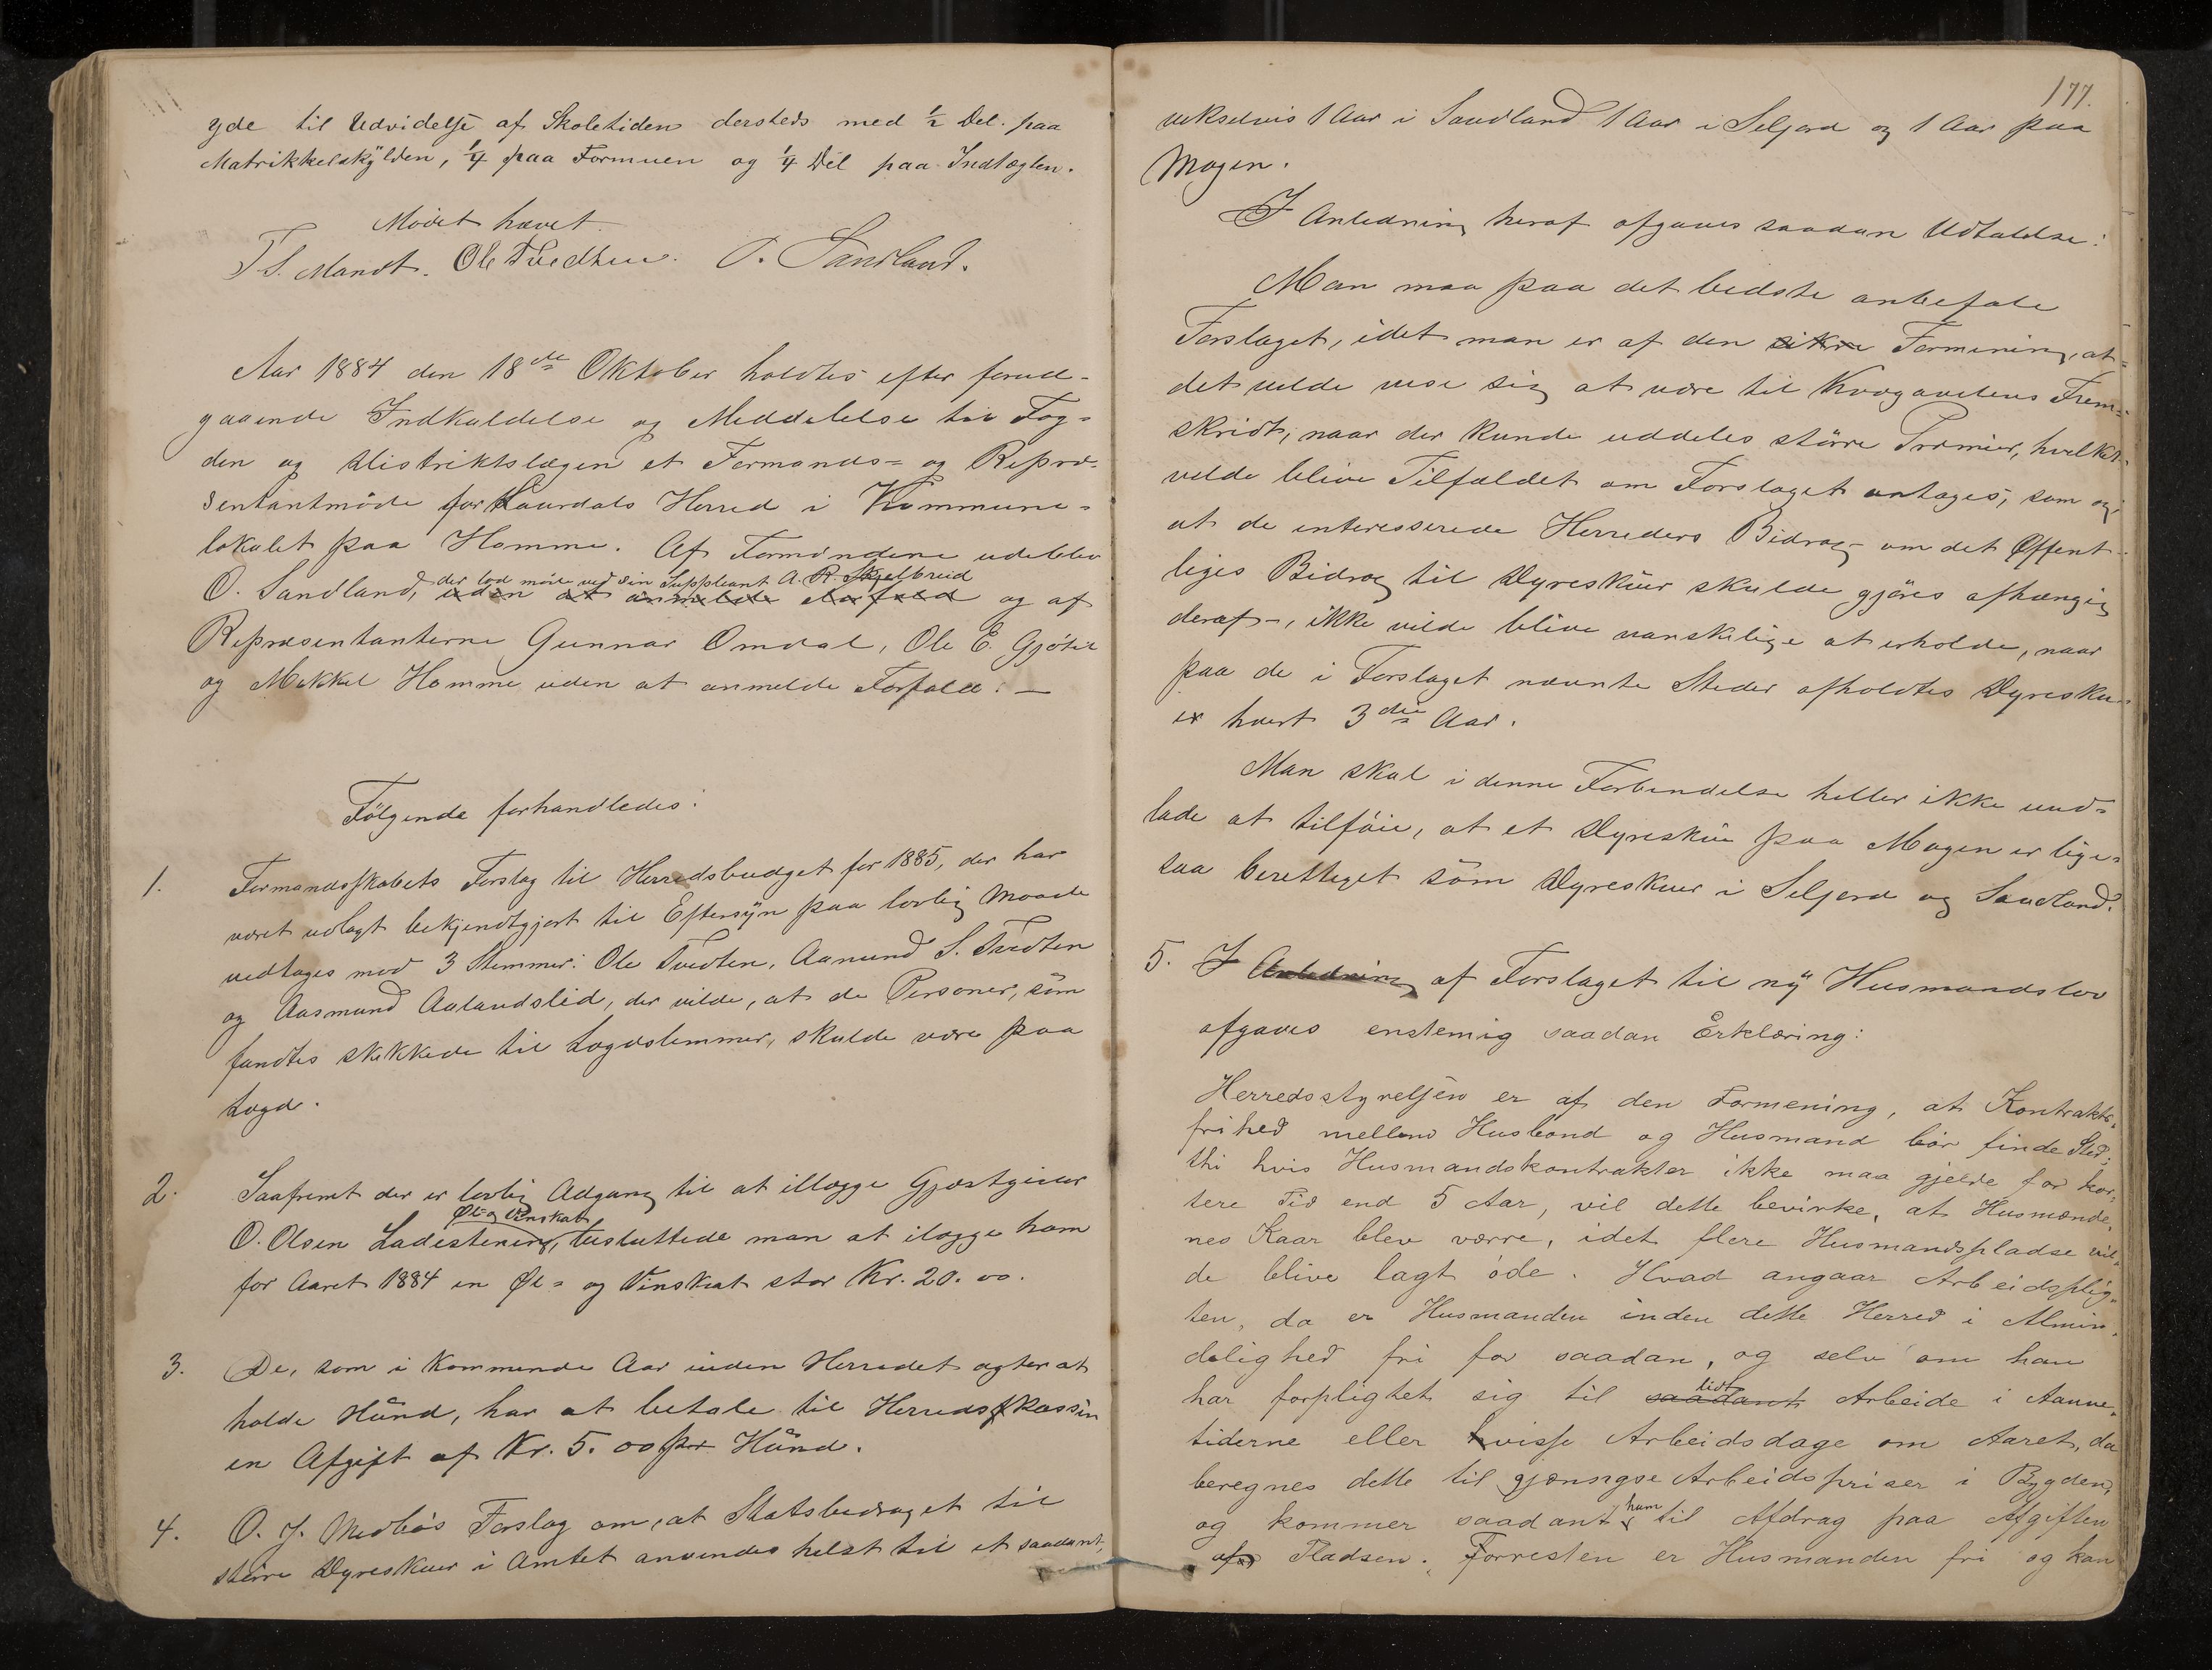 yde til Udvidelse af Skoletiden dersteds med ½ Del. paa
Matrikkelskylden, ¼ paa Formuen og ¼ Del paa Indtægten.
Mödet hævet.
T S. Mandt. Ole Tvedten. O. Sandland.
Aar 1884 den 18de Oktober holdtes efter forud-
gaaende Indkaldelse og Meddelelse til Fog-
den og Distriktslægen et Formands= og Repræ-
sentantmöde for Laurdals Herred i Kommune-
lokalet paa Homme. Af Formændene udeblev
der lod möde ved sin Suppleant A. R. Skjelbreid
O. Sandland, uden at anmelde Forfald og af
Repræsentanterne Gunnar Omdal, Ole E. Gjötil
og Mikkel Homme uden at anmelde Forfald. —
Fölgende forhandledes:
1. Formandsskabets Forslag til Herredsbudget for 1885, der har
været udlagt bekjendtgjort til Eftersyn paa lovlig Maade
vedtages mod 3 Stemmer: Ole Tvedten, Aanund S. Tvedten
og Aasmund Aalandslid, der vilde, at de Personer, som
fandtes skikkede til Lægdslemmer, skulde være paa
Lægd.
2. Saafremt der er lovlig Adgang til at illægge Gjæstgiver
Øl- og Vinskat
O. Olsen Ladestening, besluttede man at ilægge ham
for Aaret 1884 en Øl= og Vinskat stor Kr. 20. 00.
3. De, som i kommende Aar inden Herredet agter at
holde Hund, har at betale til Herredskassen
en Afgift af Kr. 5. 00 pr Hund.
4. O. J. Medbös Forslag om, at Statsbidraget til
större Dyreskuer i Amtet anvendes helst til et saadant,
177.
vekselvis 1 Aar i Saudland 1 Aar i Seljord og 1 Aar paa
Mogen.
I Anledning heraf afgaves saadan Udtalelse:
Man maa paa det bedste anbefale
Forslaget, idet man er af den sikre Formening, at
det vilde vise sig at være til Kvægavlens Frem-
skridt, naar der kunde uddeles större Præmier, hvilket
vilde blive Tilfældet om Forslaget antages, som og
at de interesserede Herreders Bidrag – om det Offent-
liges Bidrag til Dyreskuer skulde gjöres afhængig
deraf –, ikke vilde blive vanskelige at erholde, naar
paa de i Forslaget nævnte Steder afholdtes Dyresku-
er hvert 3die Aar.
Man skal i denne Forbindelse heller ikke und-
lade at tilföie, at et Dyreskue paa Mogen er lige-
saa berettiget som Dyreskuer i Seljord og Saudland.
5. I Anledning af Forslaget til ny Husmandslov
afgaves enstemig saadan Erklæring:
Herredsstyrelsen er af den Formening, at Kontrakts-
frihed mellem Husbond og Husmand bör finde Sted;
thi hvis Husmandskontrakter ikke maa gjelde for kor-
tere Tid end 5 Aar, vil dette bevirke, at Husmænde-
nes Kaar blev værre, idet flere Husmandspladse vil-
de blive lagt öde. Hvad angaar Arbeidsplig-
ten, da er Husmanden inden dette Herred i Almin-
delighed fri for saadan, og selv om han
lidt
har forpligtet sig til saadant Arbeide i Aanne-
tiderne eller visse Arbeidsdage om Aaret, da
beregnes dette til gjænngse Arbeidspriser i Bygden,
ham
og kommer saadant til Afdrag paa Afgiften
af Pladsen. Forresten er Husmanden fri og kan